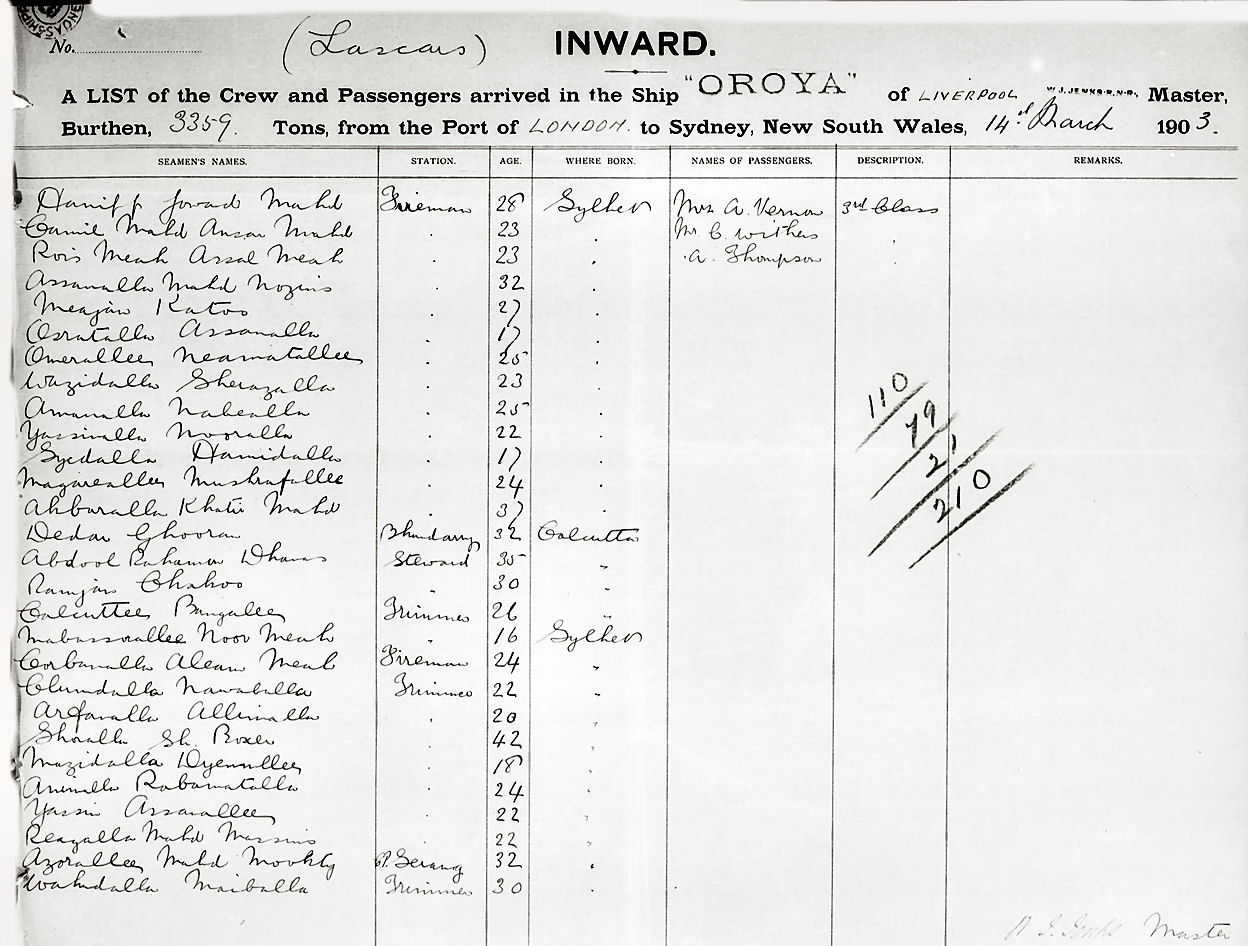 No.
(Lascars)
INWARD.
A LIST of the Crew and Passengers arrived in the Ship "OROYA" of LIVERPOOL W. J. JENKS R.N.R. Master,
Burthen, 3359. Tons, from the Port of LONDON. to Sydney, New South Wales, 14th March 1903.
SEAMEN'S NAMES. STATION. AGE. WHERE BORN. NAMES OF PASSENGERS. DESCRIPTION. REMARKS.
Haniff Jowad Mahd Fireman 28 Sylhet Mrs A. Vernon 3rd Class
Camie Mahd Ansar Mahd . 23 . Mr C. Withers .
Rois Meah Assal Meah . 23 . . A. Thompson .
Assanalla Mahd Nozins . 32 .
Meajan Katoo . 27 .
Osratalla Assanalla . 17 .
Omerallee Neamatallee . 25 .
Wazidalla Sherazalla . 23 .
Amanalla Nabealla . 25 .
Yassinalla Nooralla . 22 .
Syedalla Hamidalla . 17 .
Magareallee Mushrafallee . 24 .
Akburalla Khatir Mahd . 37 .
Dedar Ghooran Bhandarry 32 Calcutta
Abdool Rahaman Steward 35 "
Ramjan Chakoo " 30 "
Calcuttee Bangalee Trimmer 26 "
Mabassorallee Noor Meah " 16 Sylhet
Corbanalla Aleam Meah Fireman 24 "
Nawaballa Trimmer 22 "
Arfanalla Allimalla . 20 "
Shoalla Sh. Boxer . 42 "
Mazidalla . 18 "
Rabamatalla . 24 "
Yassin Assanallee . 22 "
Reazalla Mahd . 22
Azorallee Mahd Mookty Serang 32 "
Wahidalla Maiballa Trimmer 30 .
110
79
21
210
W. J. Jenks Master